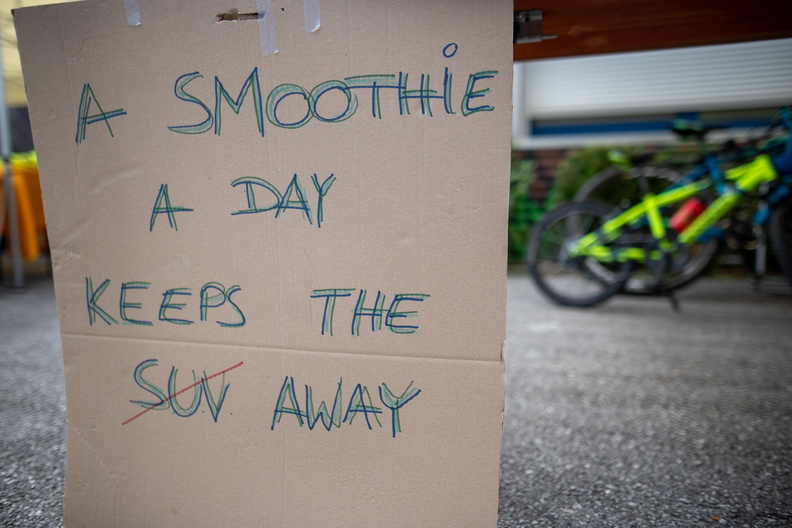 A SMOOTHiE
A DAY
KEEPS THE
SUV AWAY